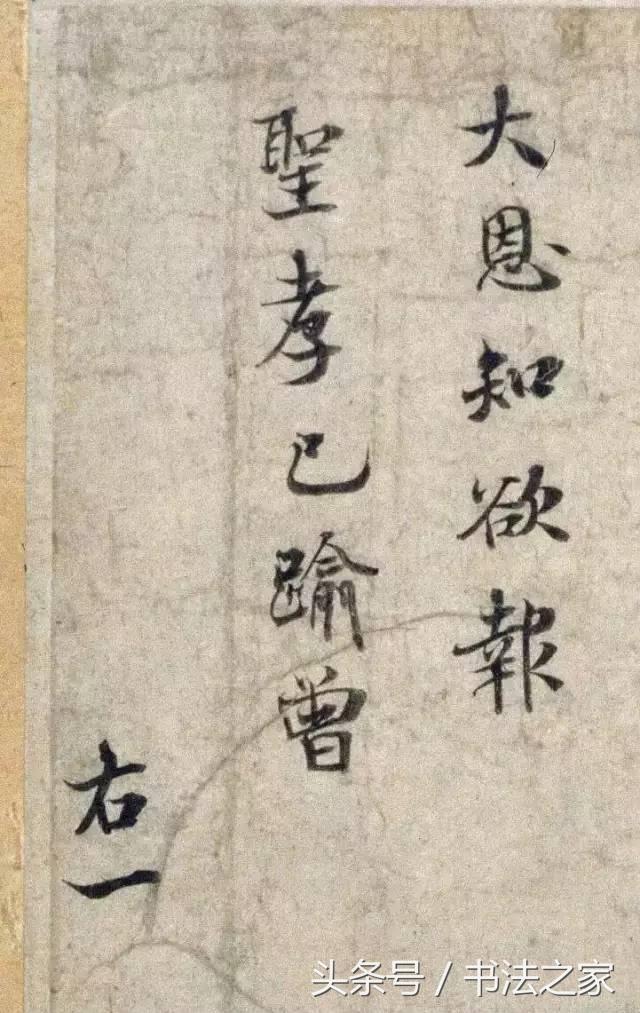 大恩知欲報
聖孝已踰曾
右一
头条号 / 书法之家